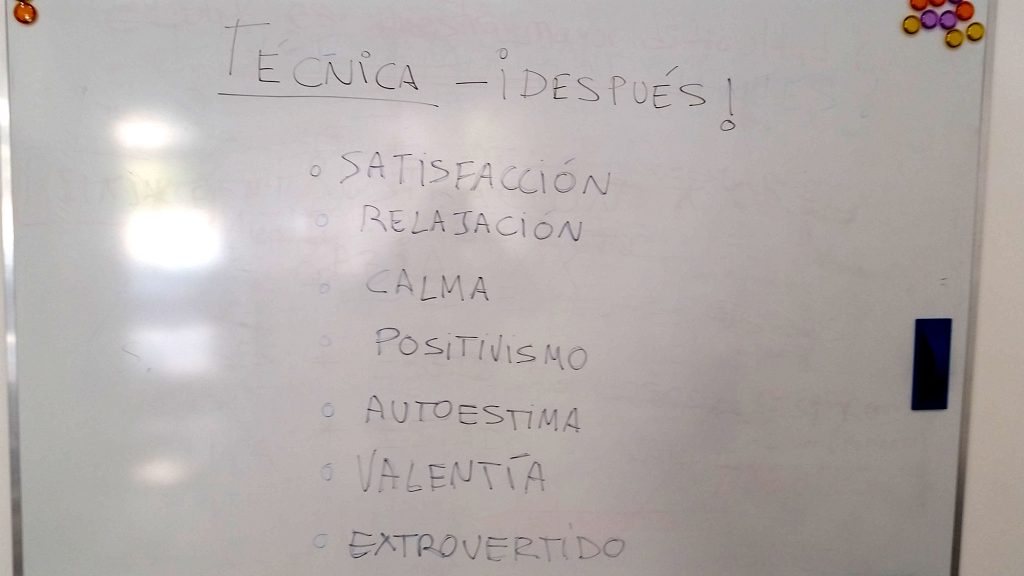 TÉCNICA - ¡DESPUÉS!
○ SATISFACCIÓN
○ RELAJACIÓN
○ CALMA
○ POSITIVISMO
○ AUTOESTIMA
○ VALENTÍA
○ EXTROVERTIDO